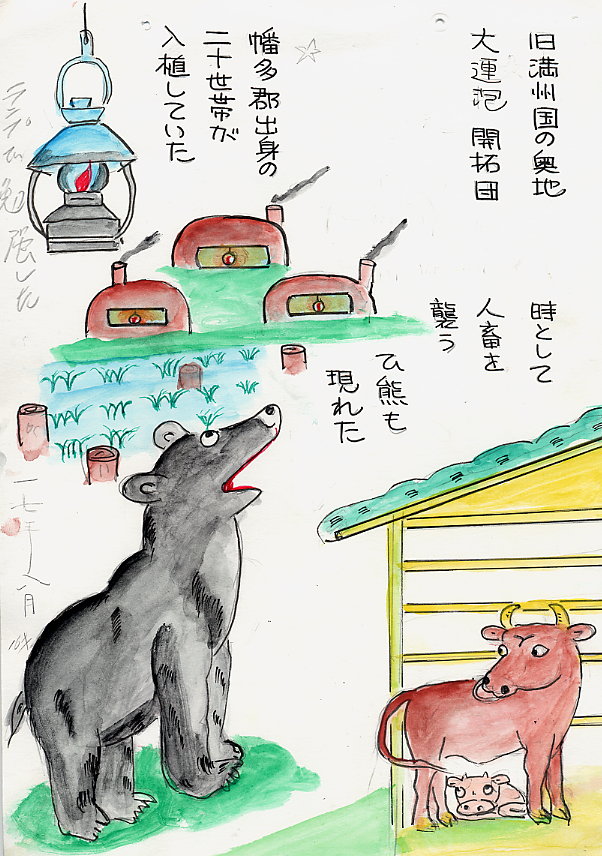 旧満州国の奥地
大運泡 開拓団
幡多郡出身の
二十世帯が
入植していた
時として
人畜を
襲う
ひ熊も
現れた
ランプで勉強した
一七年八月